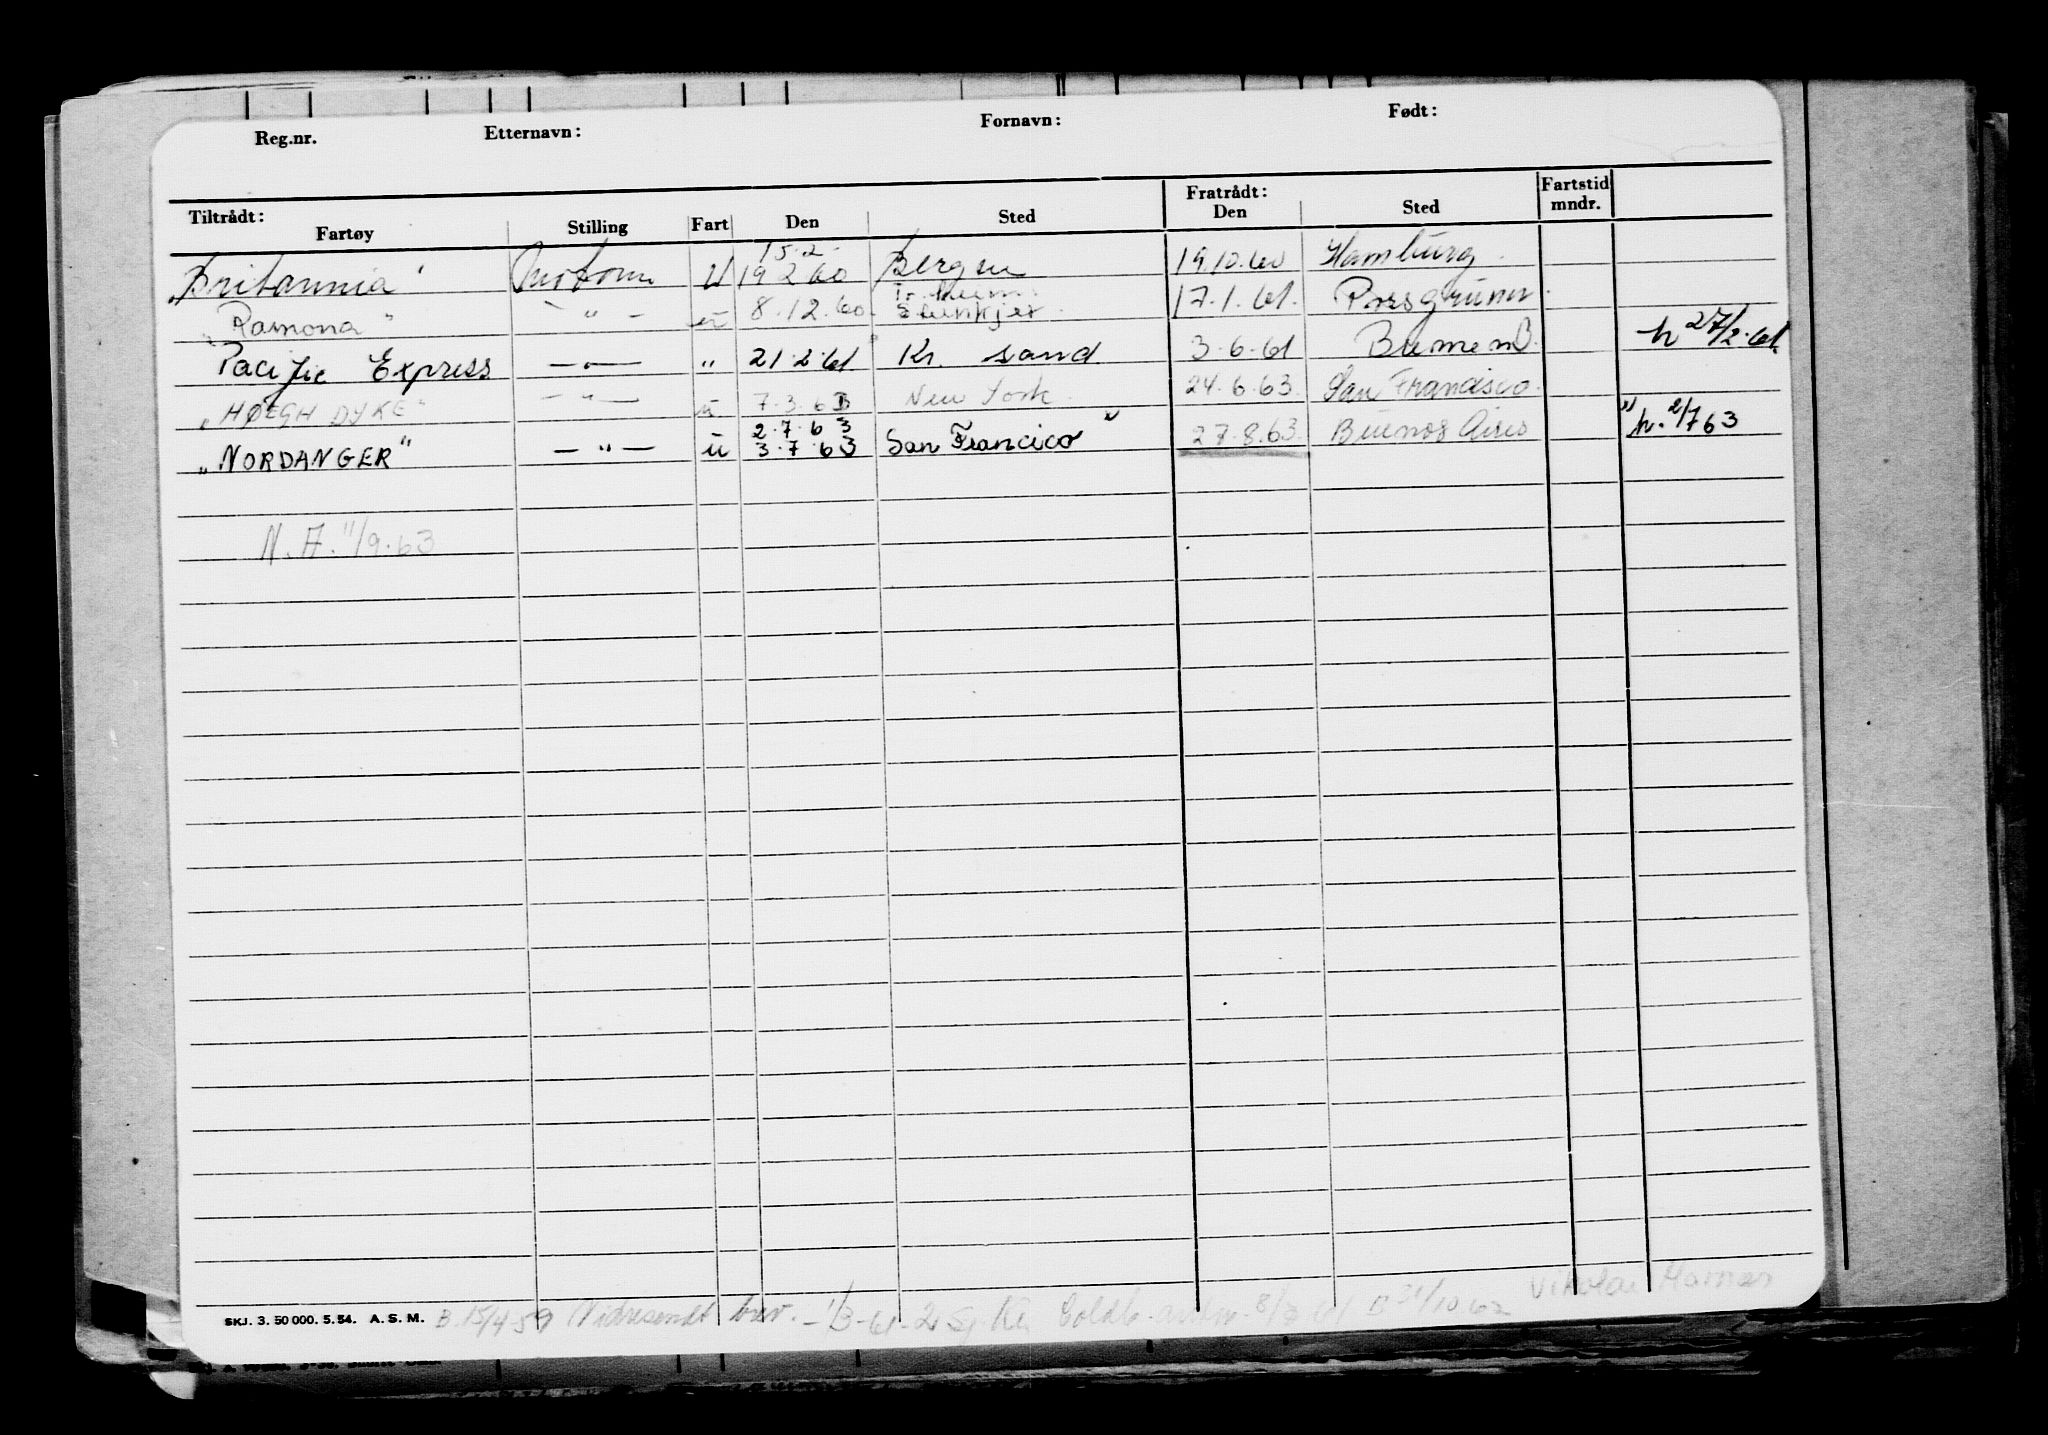 Reg.nr. Etternavn: Fornavn: Født:
Tiltrådt: Fratrådt: Fartstid
Fartøy Stilling Fart Den Sted Den Sted mndr.
15.2
"Britannia" Motorm U 19 2 60 Bergen 19.10.60 Hamburg
Tr.heim
"Ramona" - " - u 8.12.60 Steinkjer 17.1.61. Porsgrunn
Pacific Express - " - " 21.2.61 Kr. sand 3.6.61 Bremen h 27/2.61
"HØEGH DYKE" - " - u 7.3.63 New York 24.6.63. San Francisco
2.7.63
"NORDANGER" - " - u 3.7.63 San Francico " 27.8.63. Buenos Aires " h. 2/7 63
N.A. 11/9.63
SKJ. 3. 50 000. 5. 54. A. S. M. B. 15/4-59 Vidresendt brev.